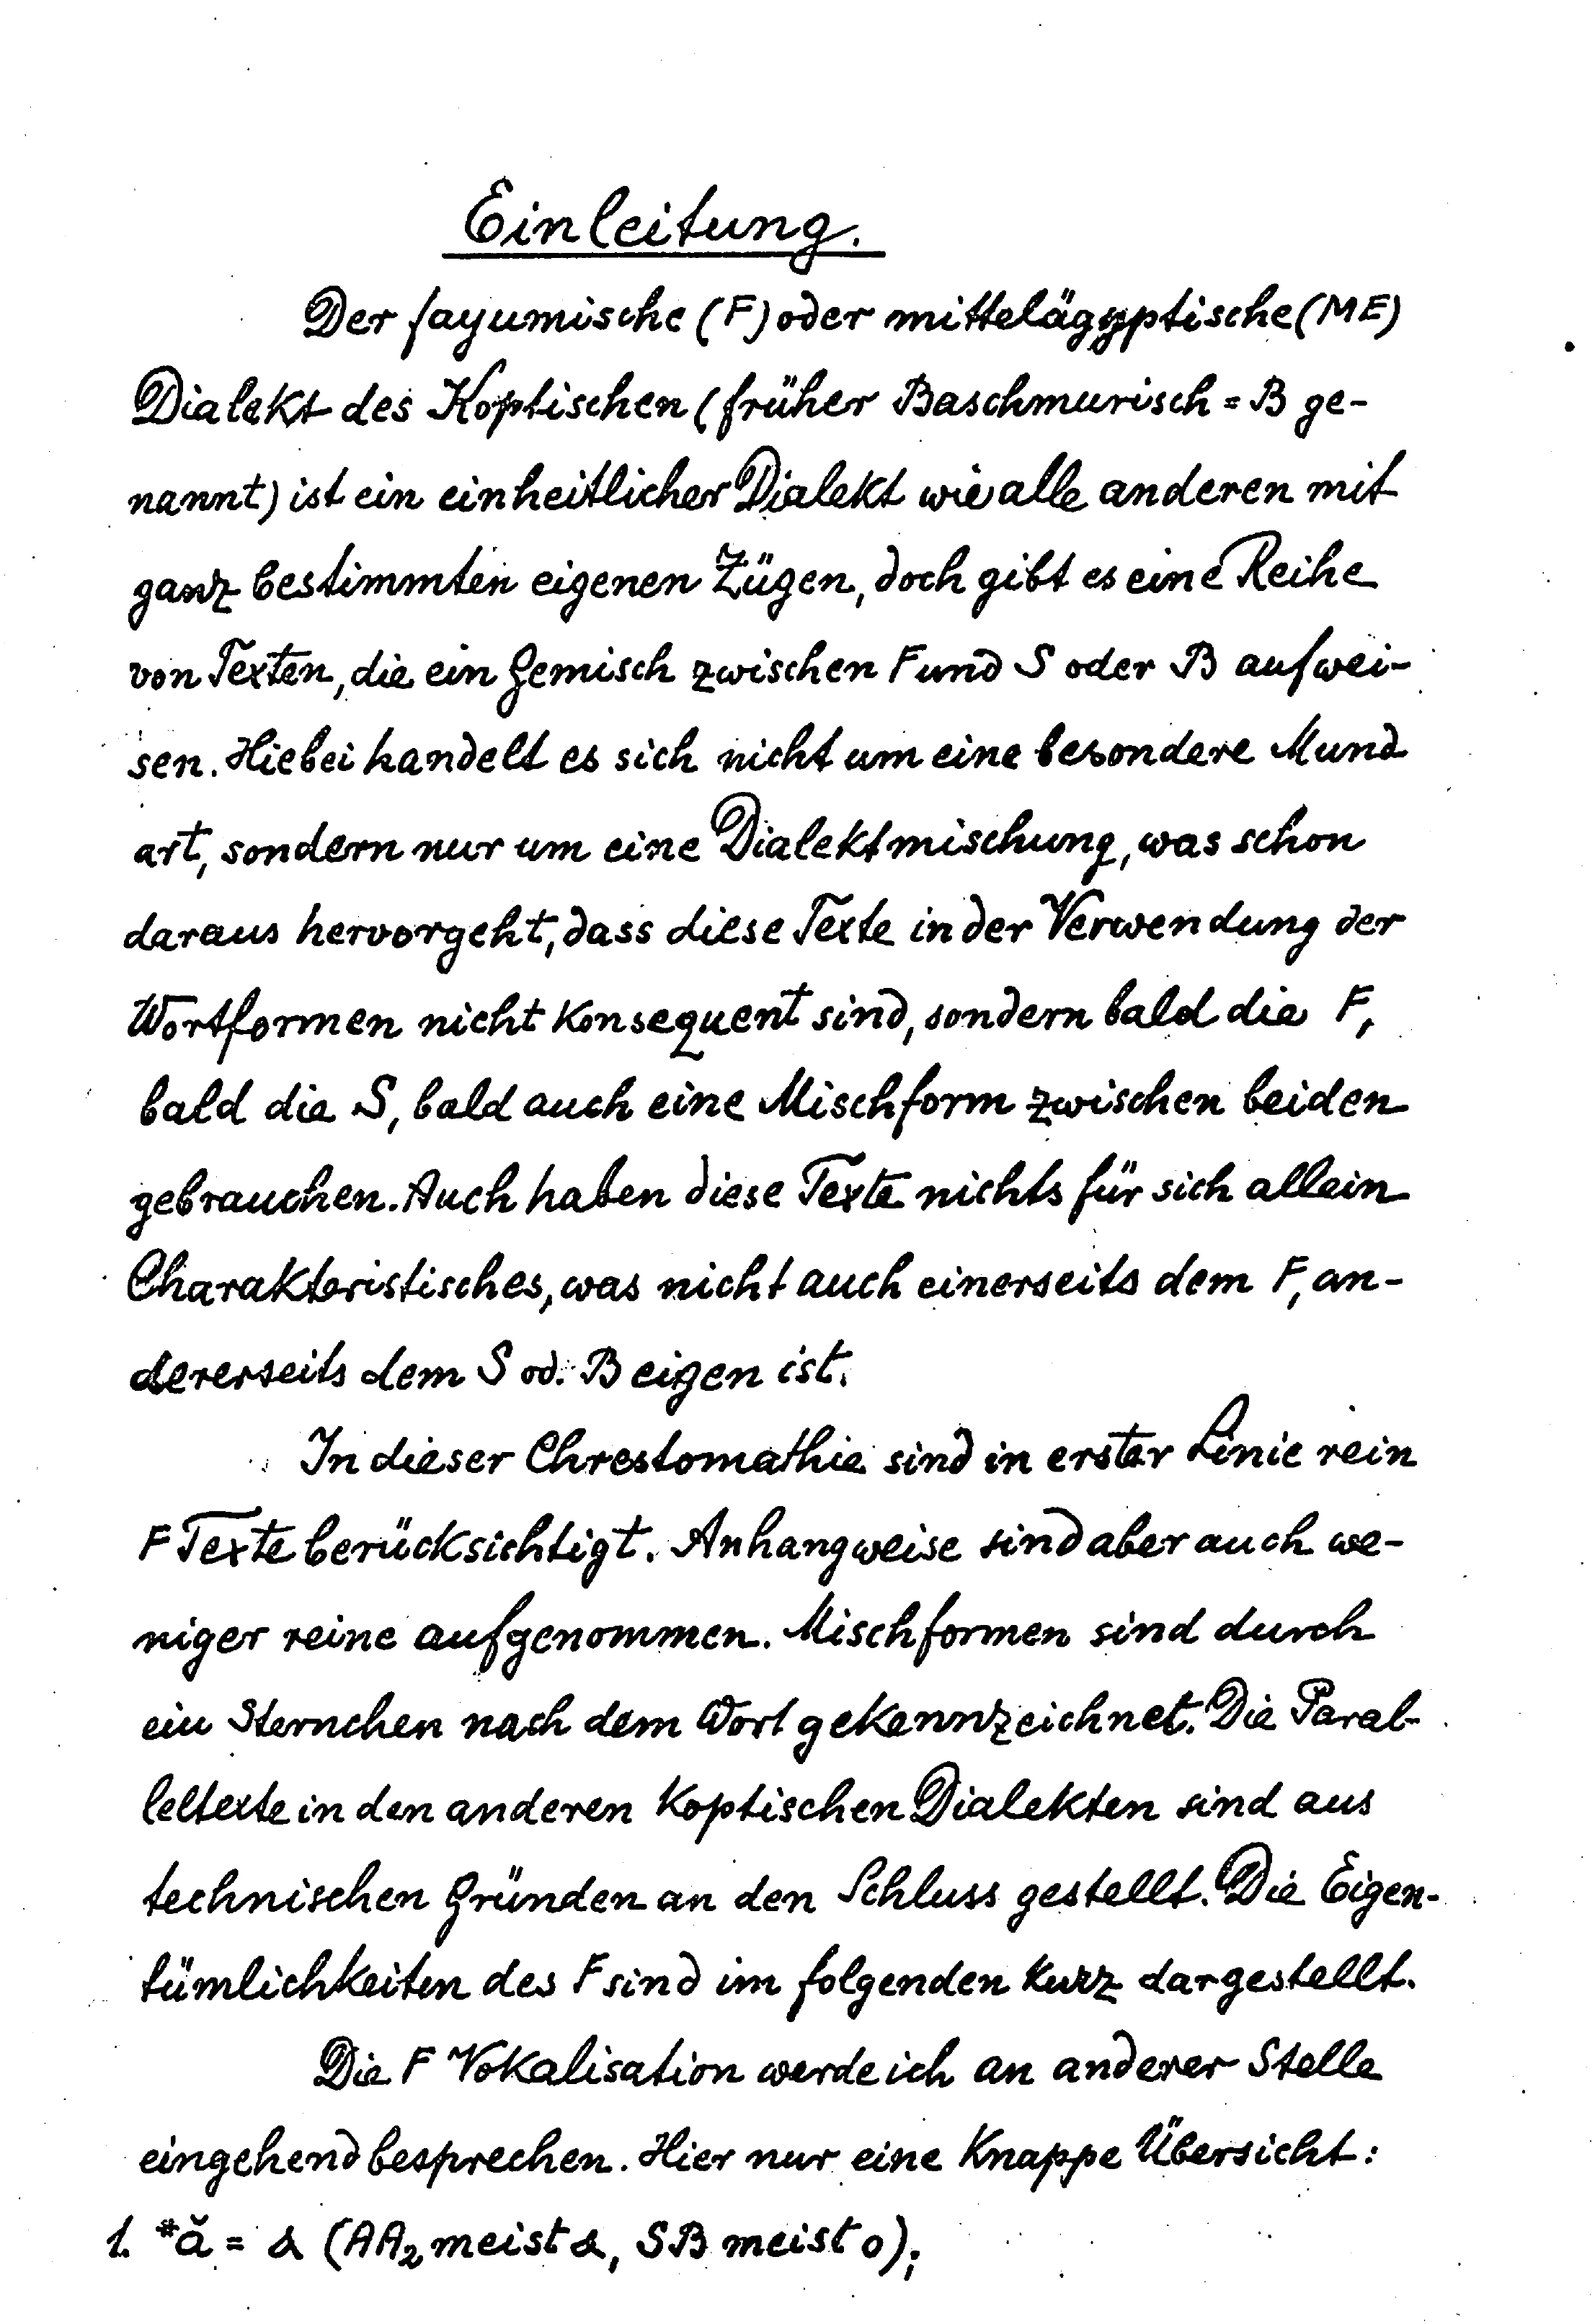 Einleitung.
Der fayumische (F) oder mittelägyptische (ME)
Dialekt des Koptischen (früher Baschmurisch = B ge-
nannt) ist ein einheitlicher Dialekt wie alle anderen mit
ganz bestimmten eigenen Zügen, doch gibt es eine Reihe
von Texten, die ein Gemisch zwischen F und S oder B aufwei-
sen. Hiebei handelt es sich nicht um eine besondere Mund
art, sondern nur um eine Dialektmischung, was schon
daraus hervorgeht, dass diese Texte in der Verwendung der
Wortformen nicht konsequent sind, sondern bald die F,
bald die S, bald auch eine Mischform zwischen beiden
gebrauchen. Auch haben diese Texte nichts für sich allein
Charakteristisches, was nicht auch einerseits dem F, an-
dererseits dem S od. B eigen ist.
In dieser Chrestomathie sind in erster Linie rein
F Texte berücksichtigt. Anhangweise sind aber auch we-
niger reine aufgenommen. Mischformen sind durch
ein Sternchen nach dem Wort gekennzeichnet. Die Paral-
leltexte in den anderen koptischen Dialekten sind aus
technischen Gründen an den Schluss gestellt. Die Eigen-
tümlichkeiten des F sind im folgenden kurz dargestellt.
Die F Vokalisation werde ich an anderer Stelle
eingehend besprechen. Hier nur eine knappe Übersicht:
1. *ă = ⲁ (AA₂ meist ⲁ, SB meist ⲟ);